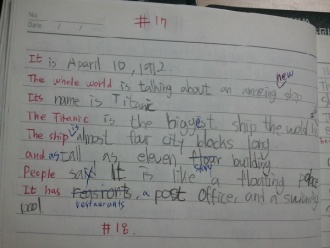 No.
Date
#17
It is Aparil 10, 1912.
The whole world is talking about an amazing new ship
Its name is Titanic
The Titanic is the biggest ship the world
The ship is almost four city blocks long
and as tall as eleven floor building
People say It is like a floating
It has restaurants, a post office, and a swimming
pool
#18.